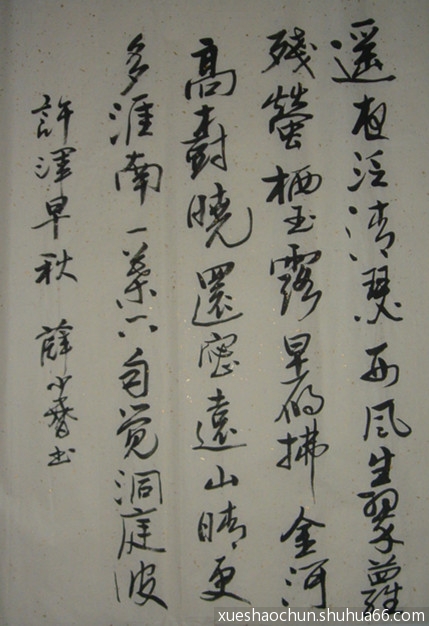 遥夜泛清瑟西风生翠蘿
殘螢栖玉露早雁拂金河
高樹曉還密遠山晴更
多淮南一葉下自觉洞庭波
許渾早秋 薛少春书
xueshaochun.shuhua66.com